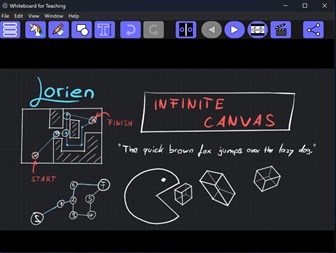 Whiteboard for Teaching
File Edit View Window Help
Lorien
INFINITE
CANVAS
FINISH
"The quick brown fox jumps over the lazy dog."
START